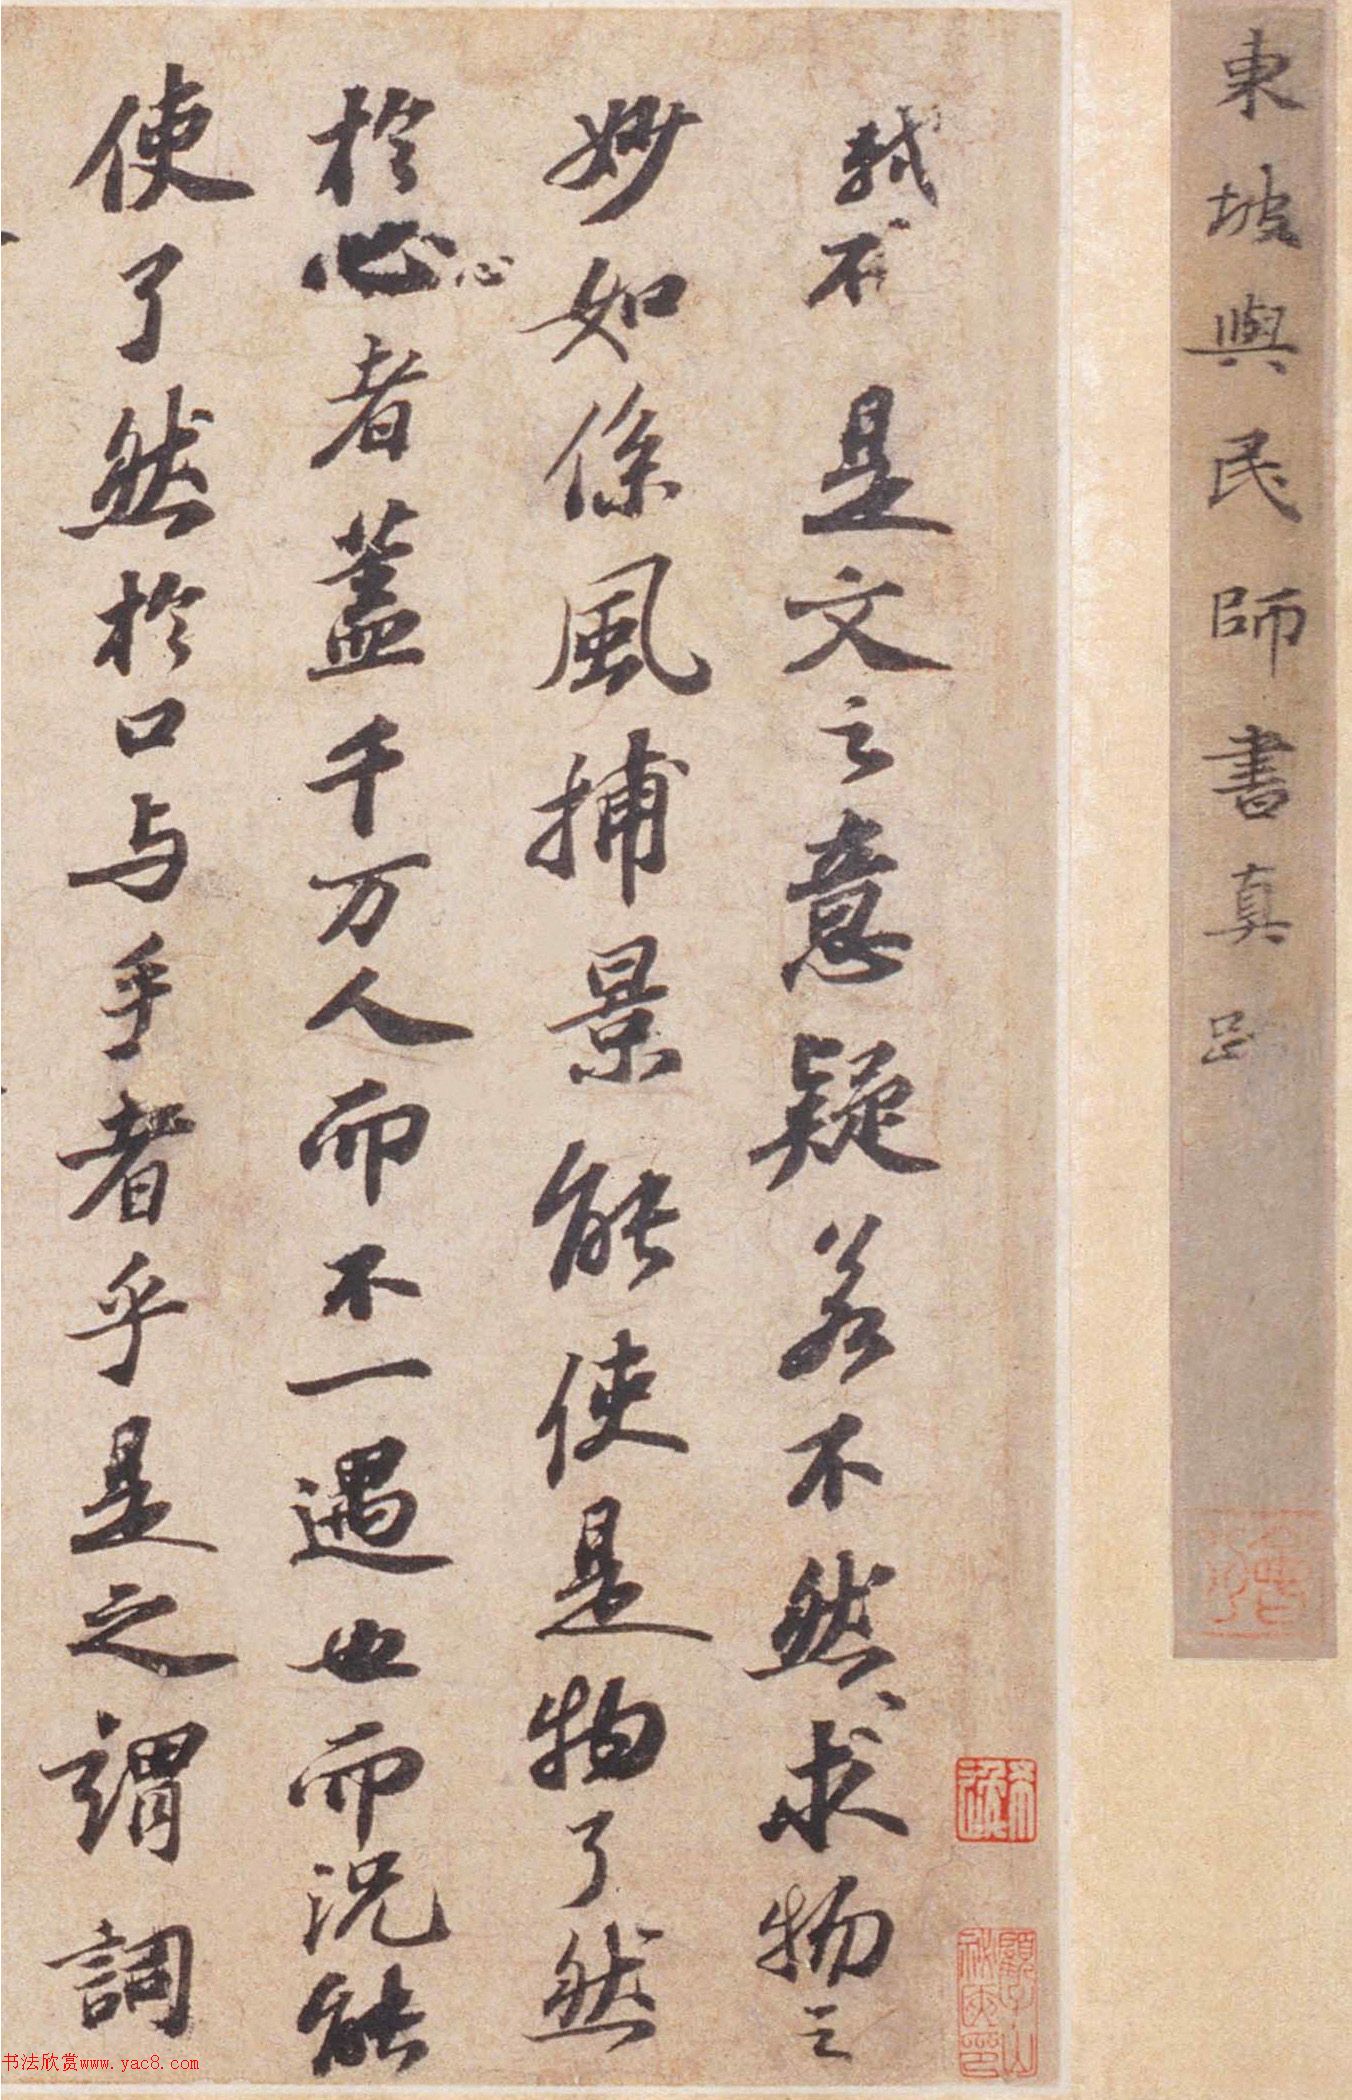 東坡與民師書真
軾不是文之意疑若不然求物之
妙如係風捕景能使是物了然
於心者蓋千万人而不一遇也而況能
心
使了然於口与手者乎是之謂詞
顧子山
书法欣赏www.yac8.com